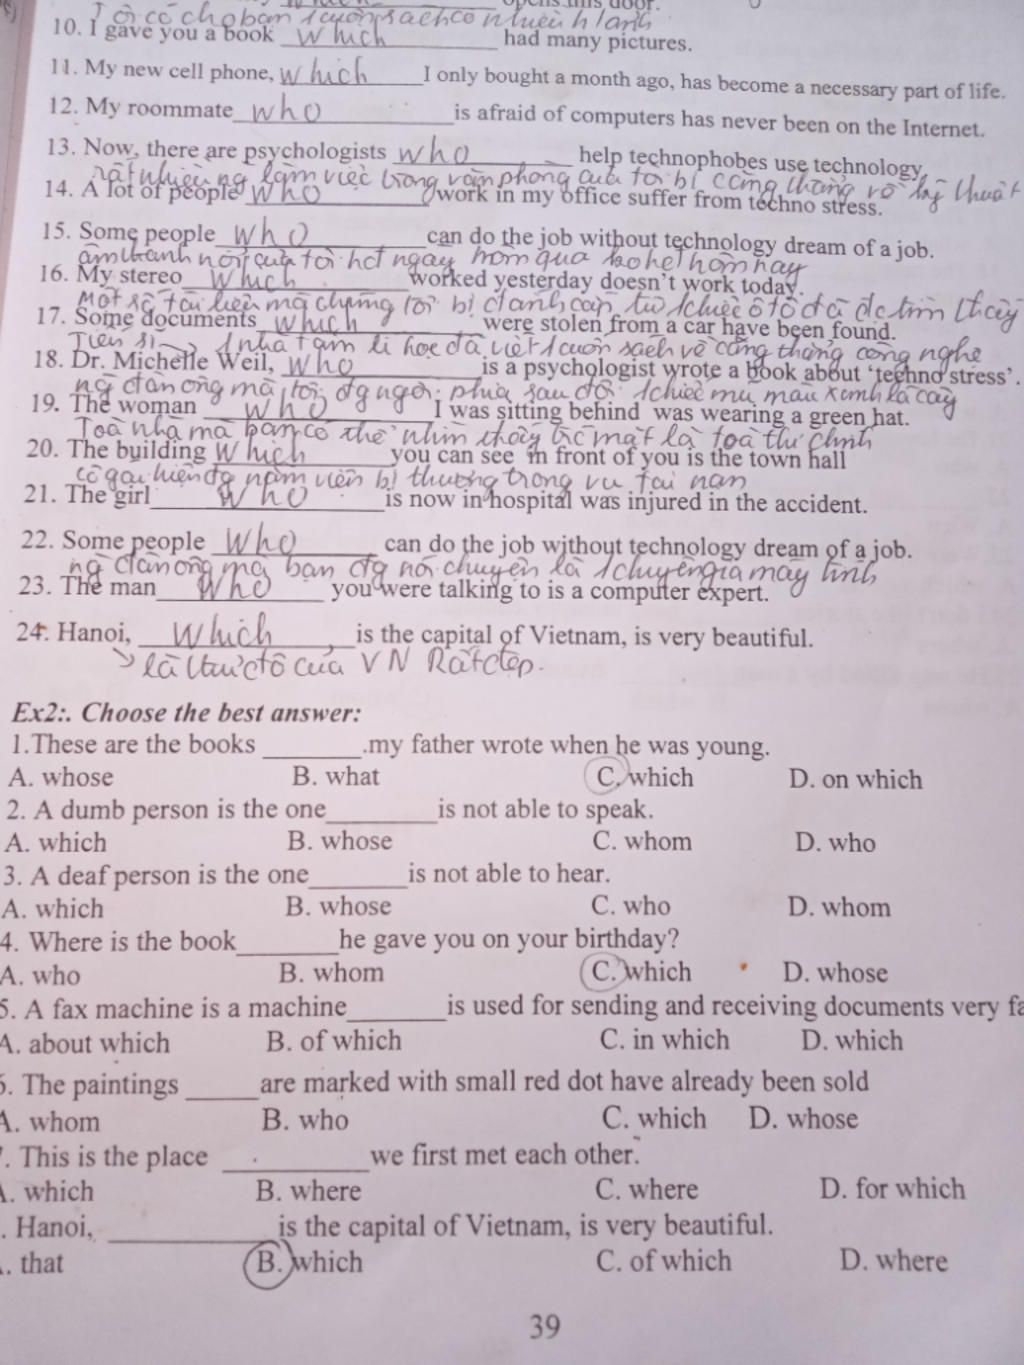 opens this door.
Tôi có cho bạn 1 cuốn sách có nhiều h/ảnh
10. I gave you a book which had many pictures.
11. My new cell phone, which I only bought a month ago, has become a necessary part of life.
12. My roommate who is afraid of computers has never been on the Internet.
13. Now, there are psychologists who help technophobes use technology.
rất nhiều ng làm việc trong văn phòng của tôi bị căng thẳng về kỹ thuật
14. A lot of people who work in my office suffer from techno stress.
15. Some people who can do the job without technology dream of a job.
âm thanh nổi của tôi hđ ngày hôm qua ko hđ hôm nay
16. My stereo which worked yesterday doesn't work today.
Một số tài liệu mà chúng tôi bị đánh cắp từ 1 chiếc ô tô đã đc tìm thấy
17. Some documents which were stolen from a car have been found.
Tiến sĩ 1 nhà tâm lí học đã viết 1 cuốn sách về căng thẳng công nghệ
18. Dr. Michelle Weil, who is a psychologist wrote a book about 'techno stress'.
ng đàn ông mà tôi đg ngồi phía sau đội 1 chiếc mũ màu xanh lá cây
19. The woman who I was sitting behind was wearing a green hat.
Toà nhà mà bạn có thể nhìn thấy trc mặt là toà thị chính
20. The building which you can see in front of you is the town hall
cô gái hiện đg nằm viện bị thương trong vụ tai nạn
21. The girl who is now in hospital was injured in the accident.
22. Some people who can do the job without technology dream of a job.
ng đàn ông mà bạn đg nói chuyện là 1 chuyên gia máy tính
23. The man who you were talking to is a computer expert.
24. Hanoi, which, is the capital of Vietnam, is very beautiful.
là thủ đô của VN Rất đẹp.
Ex2:. Choose the best answer:
1.These are the books ________.my father wrote when he was young.
A. whose B. what C. which D. on which
2. A dumb person is the one________is not able to speak.
A. which B. whose C. whom D. who
3. A deaf person is the one_______is not able to hear.
A. which B. whose C. who D. whom
4. Where is the book_______he gave you on your birthday?
A. who B. whom C. which D. whose
5. A fax machine is a machine_______is used for sending and receiving documents very fa
A. about which B. of which C. in which D. which
6. The paintings _____are marked with small red dot have already been sold
A. whom B. who C. which D. whose
. This is the place __________we first met each other.
. which B. where C. where D. for which
. Hanoi, ____________is the capital of Vietnam, is very beautiful.
. that B. which C. of which D. where
39